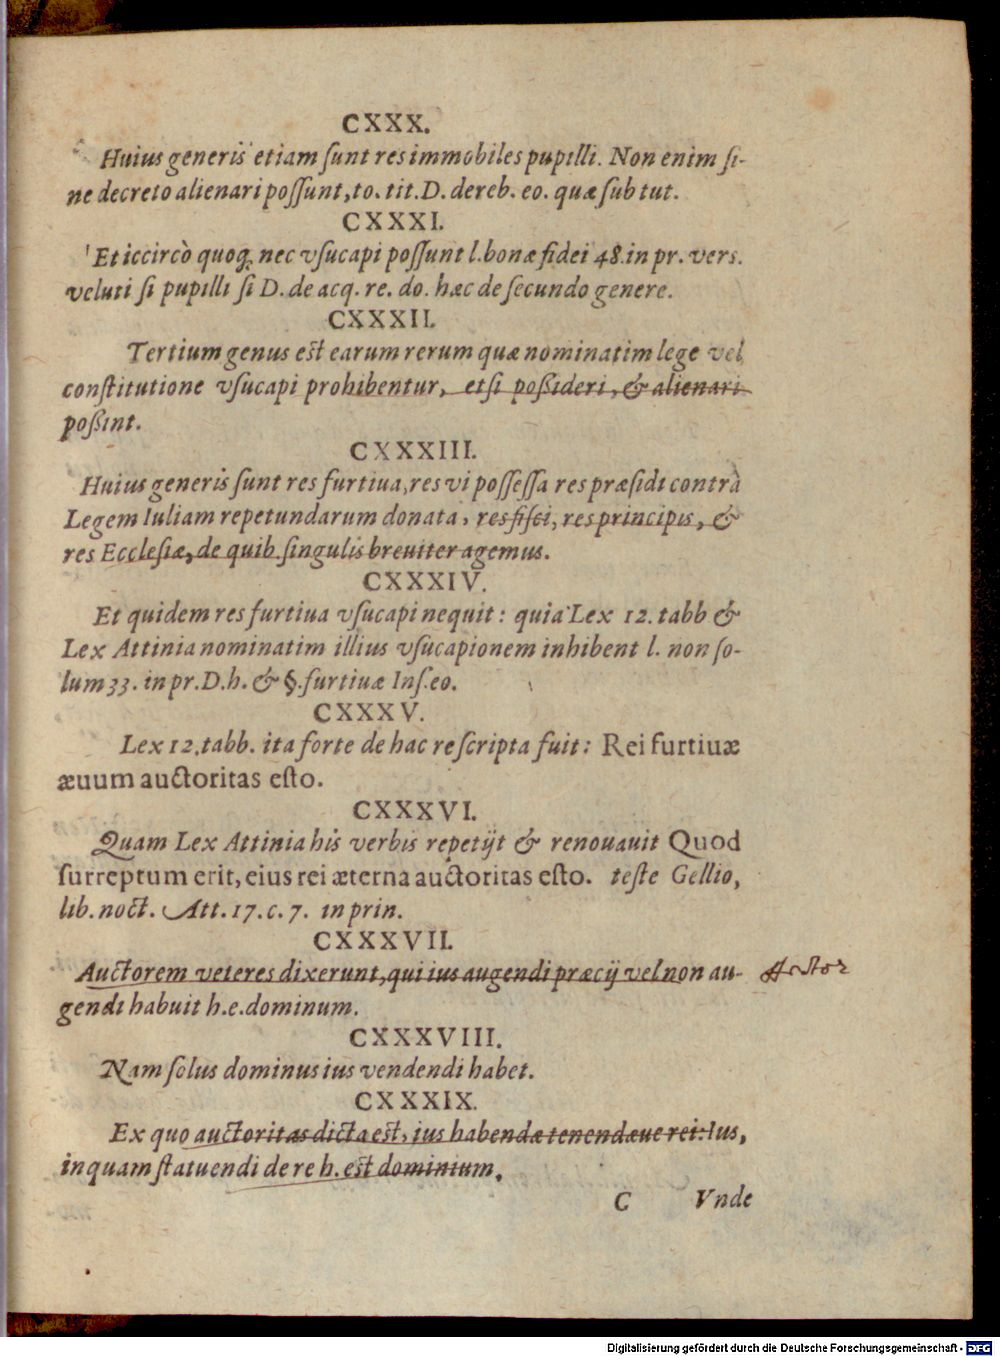 CXXX.
Huius generis etiam ſunt res immobiles pupılli. Non enim ſi-
ne decreto alienari poſſunt, to. tit. D. de reb. eo. quæ ſub tut.
CXXXI.
Et iccircò quoq; nec vſucapi poſſunt l. bonæ fidei 48. in pr. vers.
veluti ſi pupılli ſi D. de acq. re. do. hæc de ſecundo genere.
CXXXII.
Tertium genus est earum rerum quæ nominatim lege vel
conſtitutione vſucapi prohibentur, etſi poßideri, & alienari
poßint.
CXXXIII.
Huius generis ſunt res furtiua, res vi poſſeſſa res præſidi contrà
Legem Iuliam repetundarum donata, res fiſci, res principis, &
res Eccleſiæ, de quib. ſingulis breuiter agemus.
CXXXIV.
Et quidem res furtiua vſucapi nequit: quia Lex 12. tabb &
Lex Attinia nominatim illius vſucapionem inhibent l. non ſo-
lum 33. in pr. D. h. & §. furtiuæ Inſ. eo.
CXXXV.
Lex 12. tabb. ita forte de hac re ſcripta fuit: Rei furtiuæ
æuum auctoritas eſto.
CXXXVI.
Quam Lex Attinia his verbis repetijt & renouauit Quod
ſurreptum erit, eius rei æterna auctoritas eſto. teſte Gellio,
lib. noct. Att. 17. c. 7. in prin.
CXXXVII.
Auctorem veteres dixerunt, qui ius augendi præcij vel non au-
gendi habuit h. e. dominum.
Auctor
CXXXVIII.
Nam ſolus dominus ius vendendi habet.
CXXXIX.
Ex quo auctoritas dicta est, ius habendæ tenendæue rei: Ius,
inquam ſtatuendi de re h. est dominium.
C Vnde
Digitalisierung gefördert durch die Deutsche Forschungsgemeinschaft - DFG